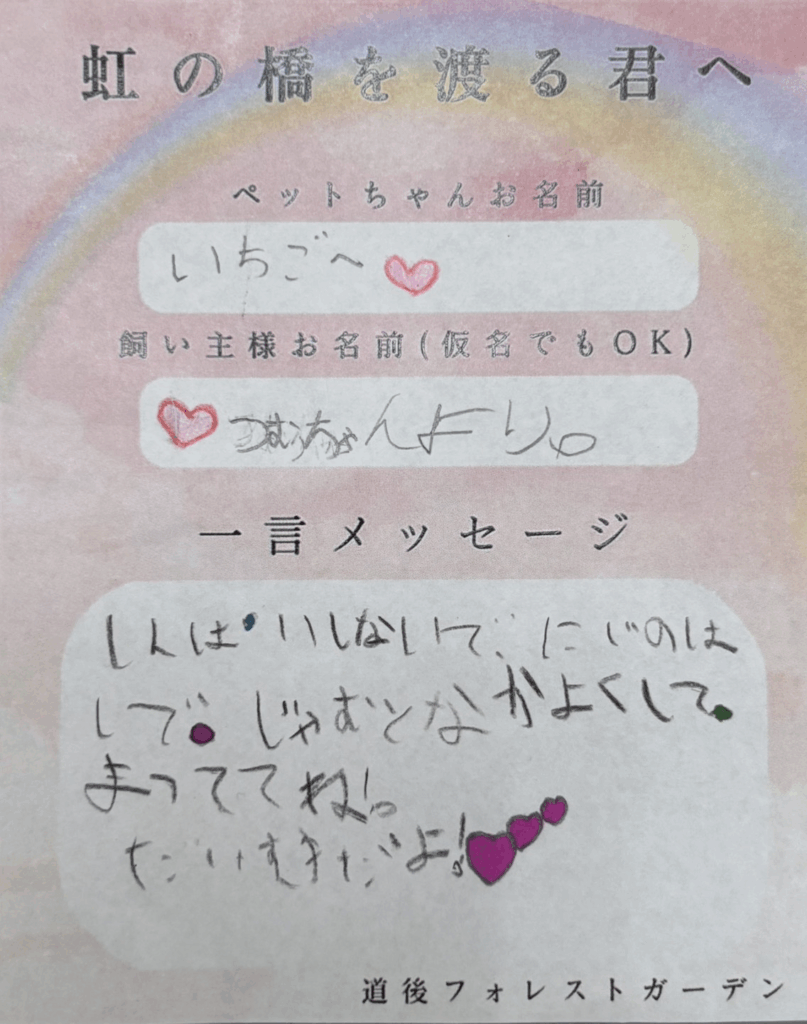 虹の橋を渡る君へ
ペットちゃんお名前
いちごへ
飼い主様お名前(仮名でもOK)
つむちゃんより。
一言メッセージ
しんぱいしないで、にじのは
しで。じゃむとなかよくして。
まっててね!。
だいすきだよ!
道後フォレストガーデン